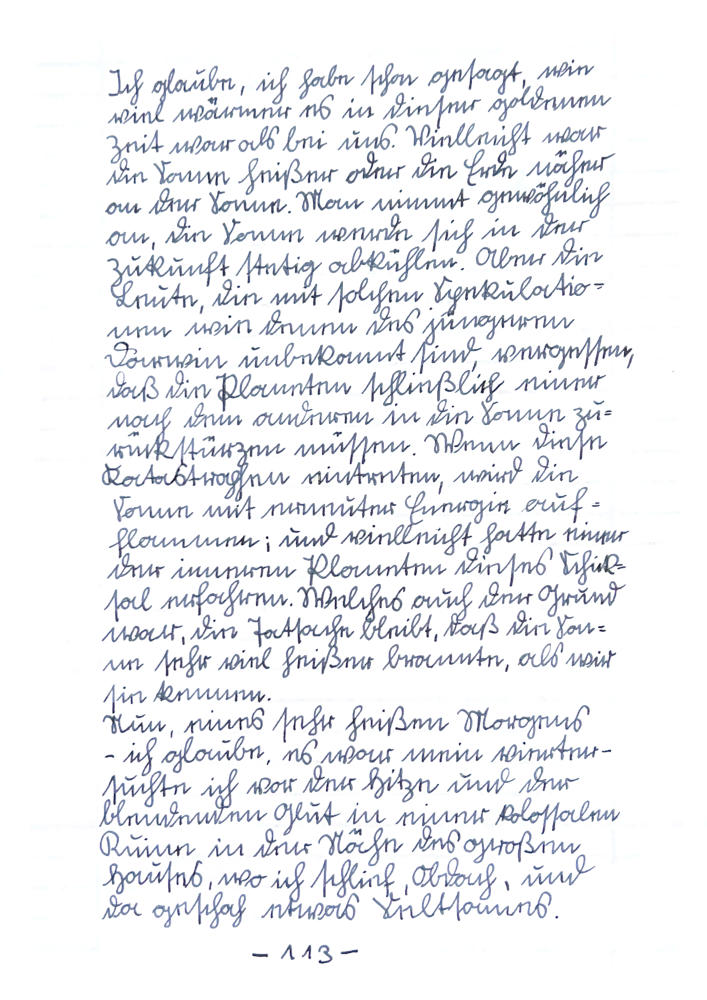 Ich glaube, ich habe schon gesagt, wie
viel wärmer es in dieser goldenen
Zeit war als bei uns. Vielleicht war
die Sonne heißer oder die Erde näher
an der Sonne. Man nimmt gewöhnlich
an, die Sonne werde sich in der
Zukunft stetig abkühlen. Aber die
Leute, die mit solchen Spekulatio=
nen wie denen des jüngeren
Darwin unbekannt sind, vergessen,
daß die Planeten schließlich einer
nach dem anderen in die Sonne zu=
rückstürzen müssen. Wenn diese
Katastrophen eintreten, wird die
Sonne mit erneuter Energie auf=
flammen; und vielleicht hatte einer
der inneren Planeten dieses Schick=
sal erfahren. Welches auch der Grund
war, die Tatsache bleibt, daß die Son=
ne sehr viel heißer brannte, als wir
sie kennen.
Nun, eines sehr heißen Morgens
- ich glaube, es war mein vierter-
suchte ich vor der Hitze und der
blendenden Glut in einer kolossalen
Ruine in der Nähe des großen
Hauses, wo ich schlief, Obdach, und
da geschah etwas Seltsames.
- 113 -